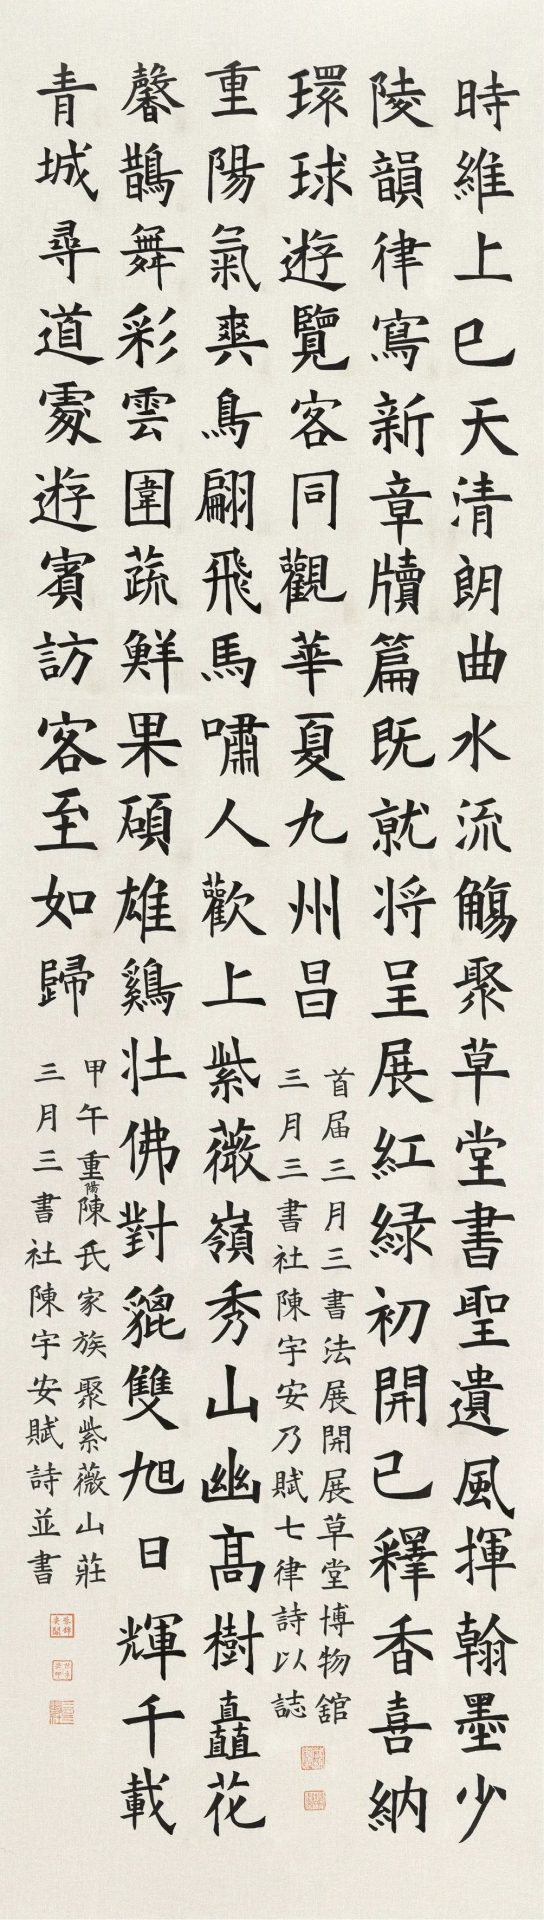 時維上巳天清朗曲水流觴聚草堂書聖遺風揮翰墨少
陵韻律寫新章牘篇既就将呈展紅緑初開已釋香喜納
環球遊覽客同觀華夏九州昌
首届三月三書法展開展草堂博物舘
三月三書社陳宇安乃賦七律詩以誌
重陽氣爽鳥翩飛馬嘯人歡上紫薇嶺秀山幽髙樹矗花
馨鵲舞彩雲圍蔬鮮果碩雄鷄壯佛對貔雙旭日輝千載
青城尋道處遊賓訪客至如歸
甲午重陽陳氏家族聚紫薇山莊
三月三書社陳宇安賦詩並書